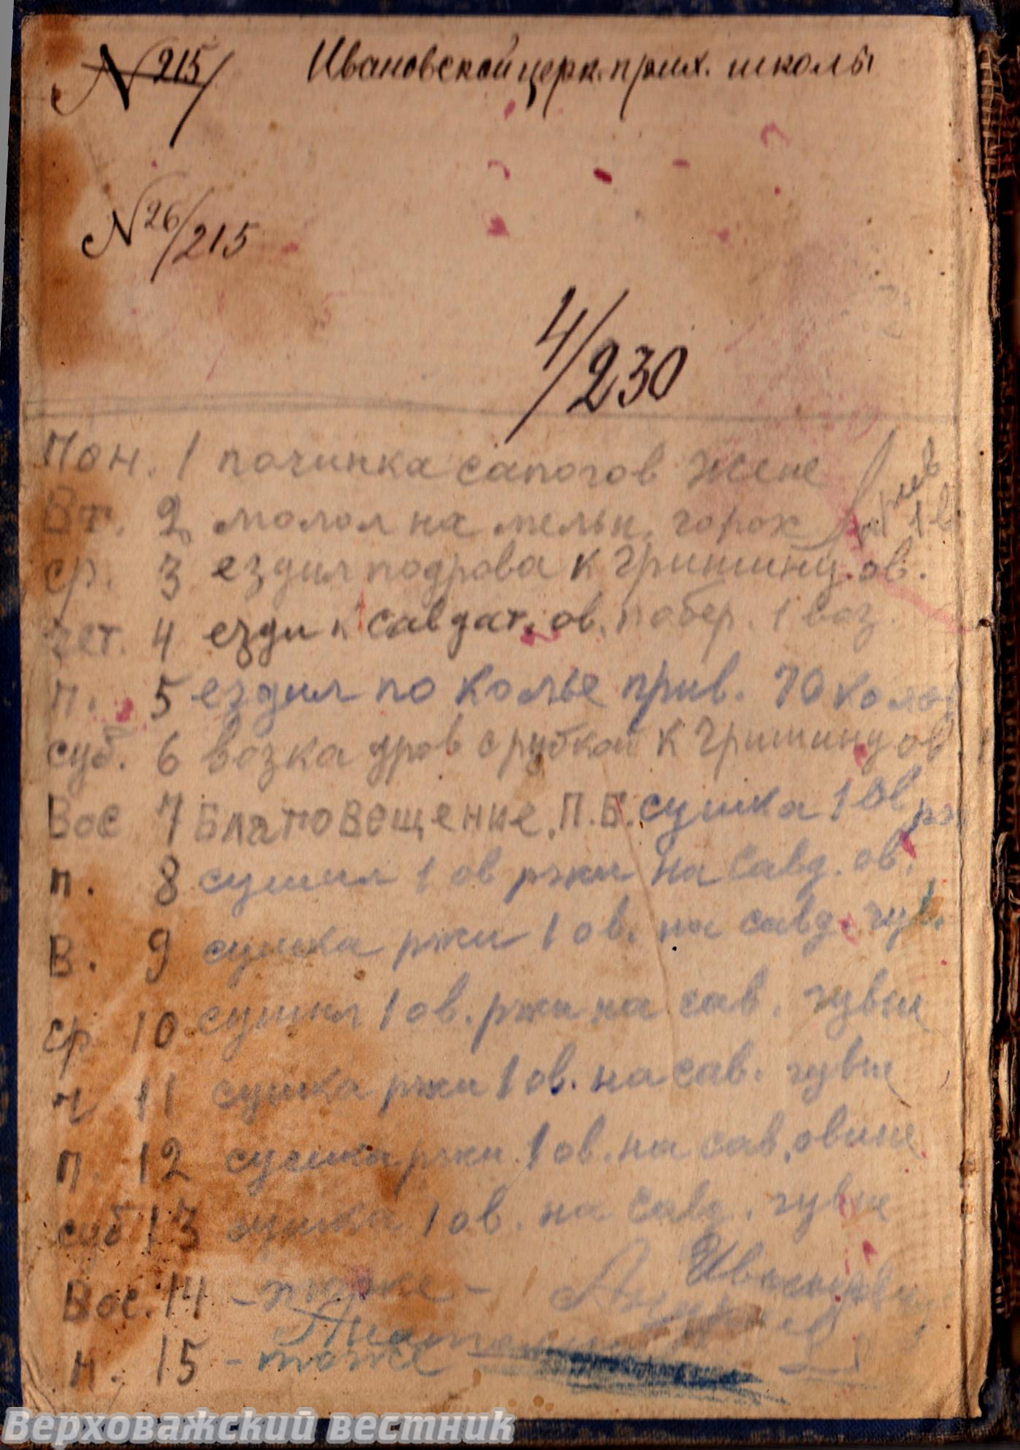 N 215/
Ивановской церк. прих. школы
N 26/215
4/230
Пон. 1 починка сапогов жене
Вт. 2 молол на мельн. горох
ср. 3 ездил подрова к Гришину. ов.
чет. 4 езди к савдат. ов. побер. 1 воз.
п. 5 ездил по колье прив. 70
суб. 6 возка дров с рубкой к Гришину ов
Вос 7 Благовещение. П.Б. сушка 1 ов
п. 8 сушил 1 ов ржи на савд. ов.
В. 9 сушка ржи 1 ов. на савд. гув.
ср 10 сушил 1 ов. ржи на сав. гувне
ч 11 сушка ржи 1 ов. на сав. гувне
п. 12 сушка ржи 1 ов. на сав. овине
суб 13 сушка 1 ов. на савд. гувне
Вос. 14 - тоже -
н. 15 - тоже
Верховажский вестник